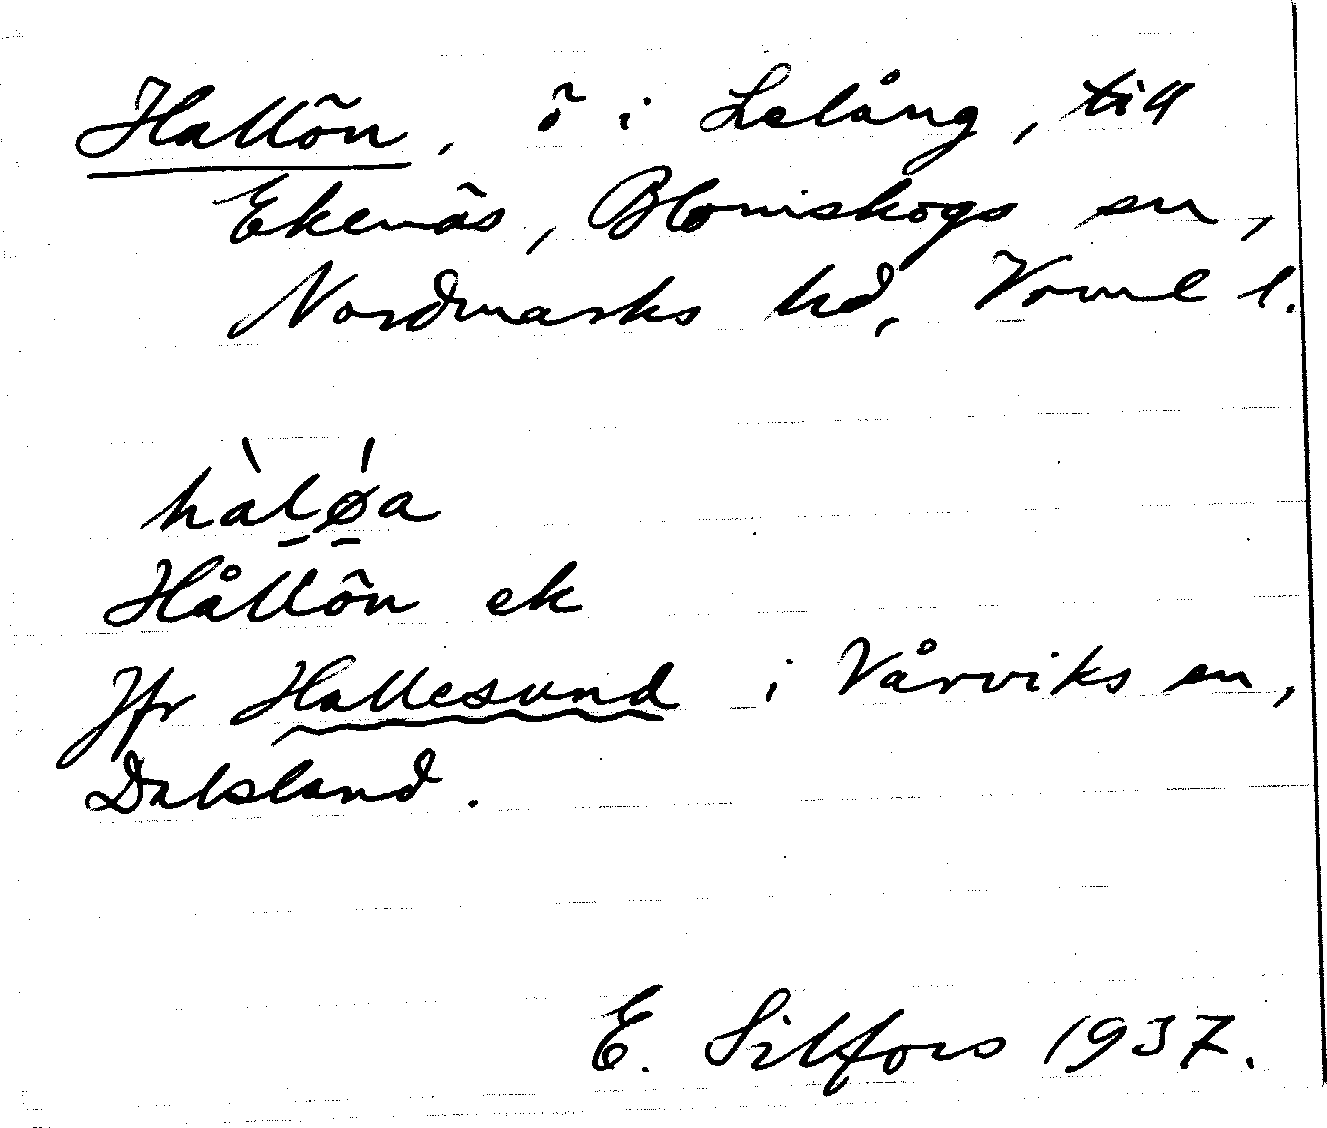 Hallön, ö i Lelång, till
Ekenäs, Blomskogs sn,
Nordmarks hd, Värml l.
hàl̠ǿ̠a
Hållön ek
Jfr Hallesund i Vårviks sn,
Dalsland.
E. Silfors 1937.